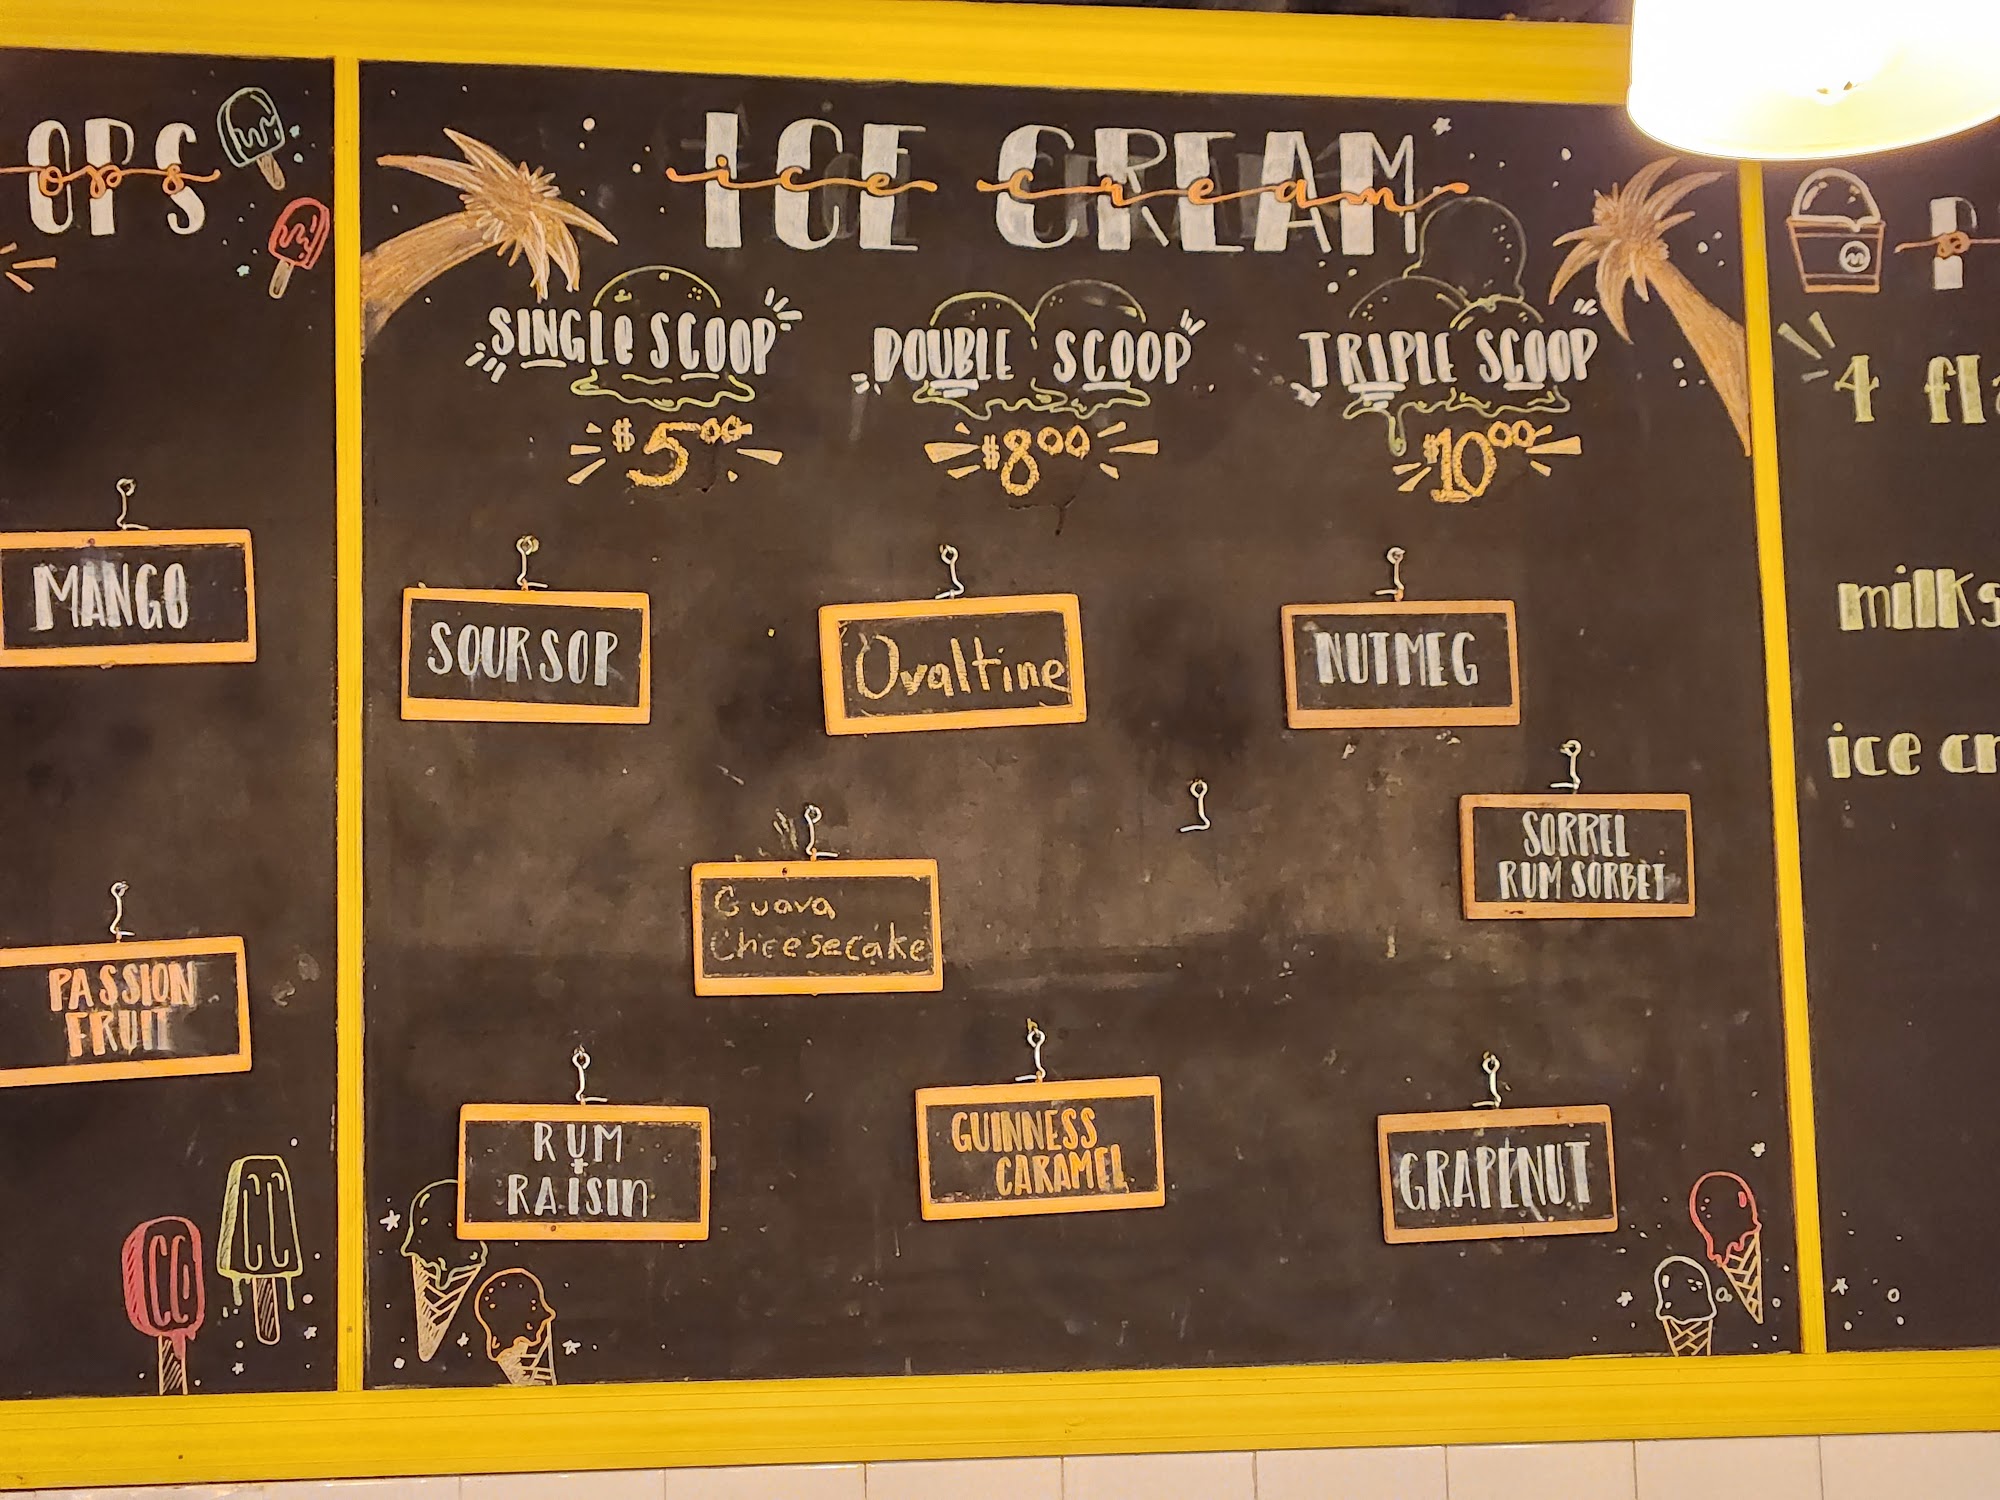 OPS
ops
MANGO
PASSION
FRUIT
CC
CC
ICE CREAM
ice cream
SINGLE SCOOP
$5.00
DOUBLE SCOOP
$8.00
TRIPLE SCOOP
$10.00
SOURSOP
Ovaltine
NUTMEG
Guava
Cheesecake
SORREL
RUM SORBET
RUM
+
RAISIN
GUINNESS
CARAMEL
GRAPENUT
4 fla
milks
ice cr